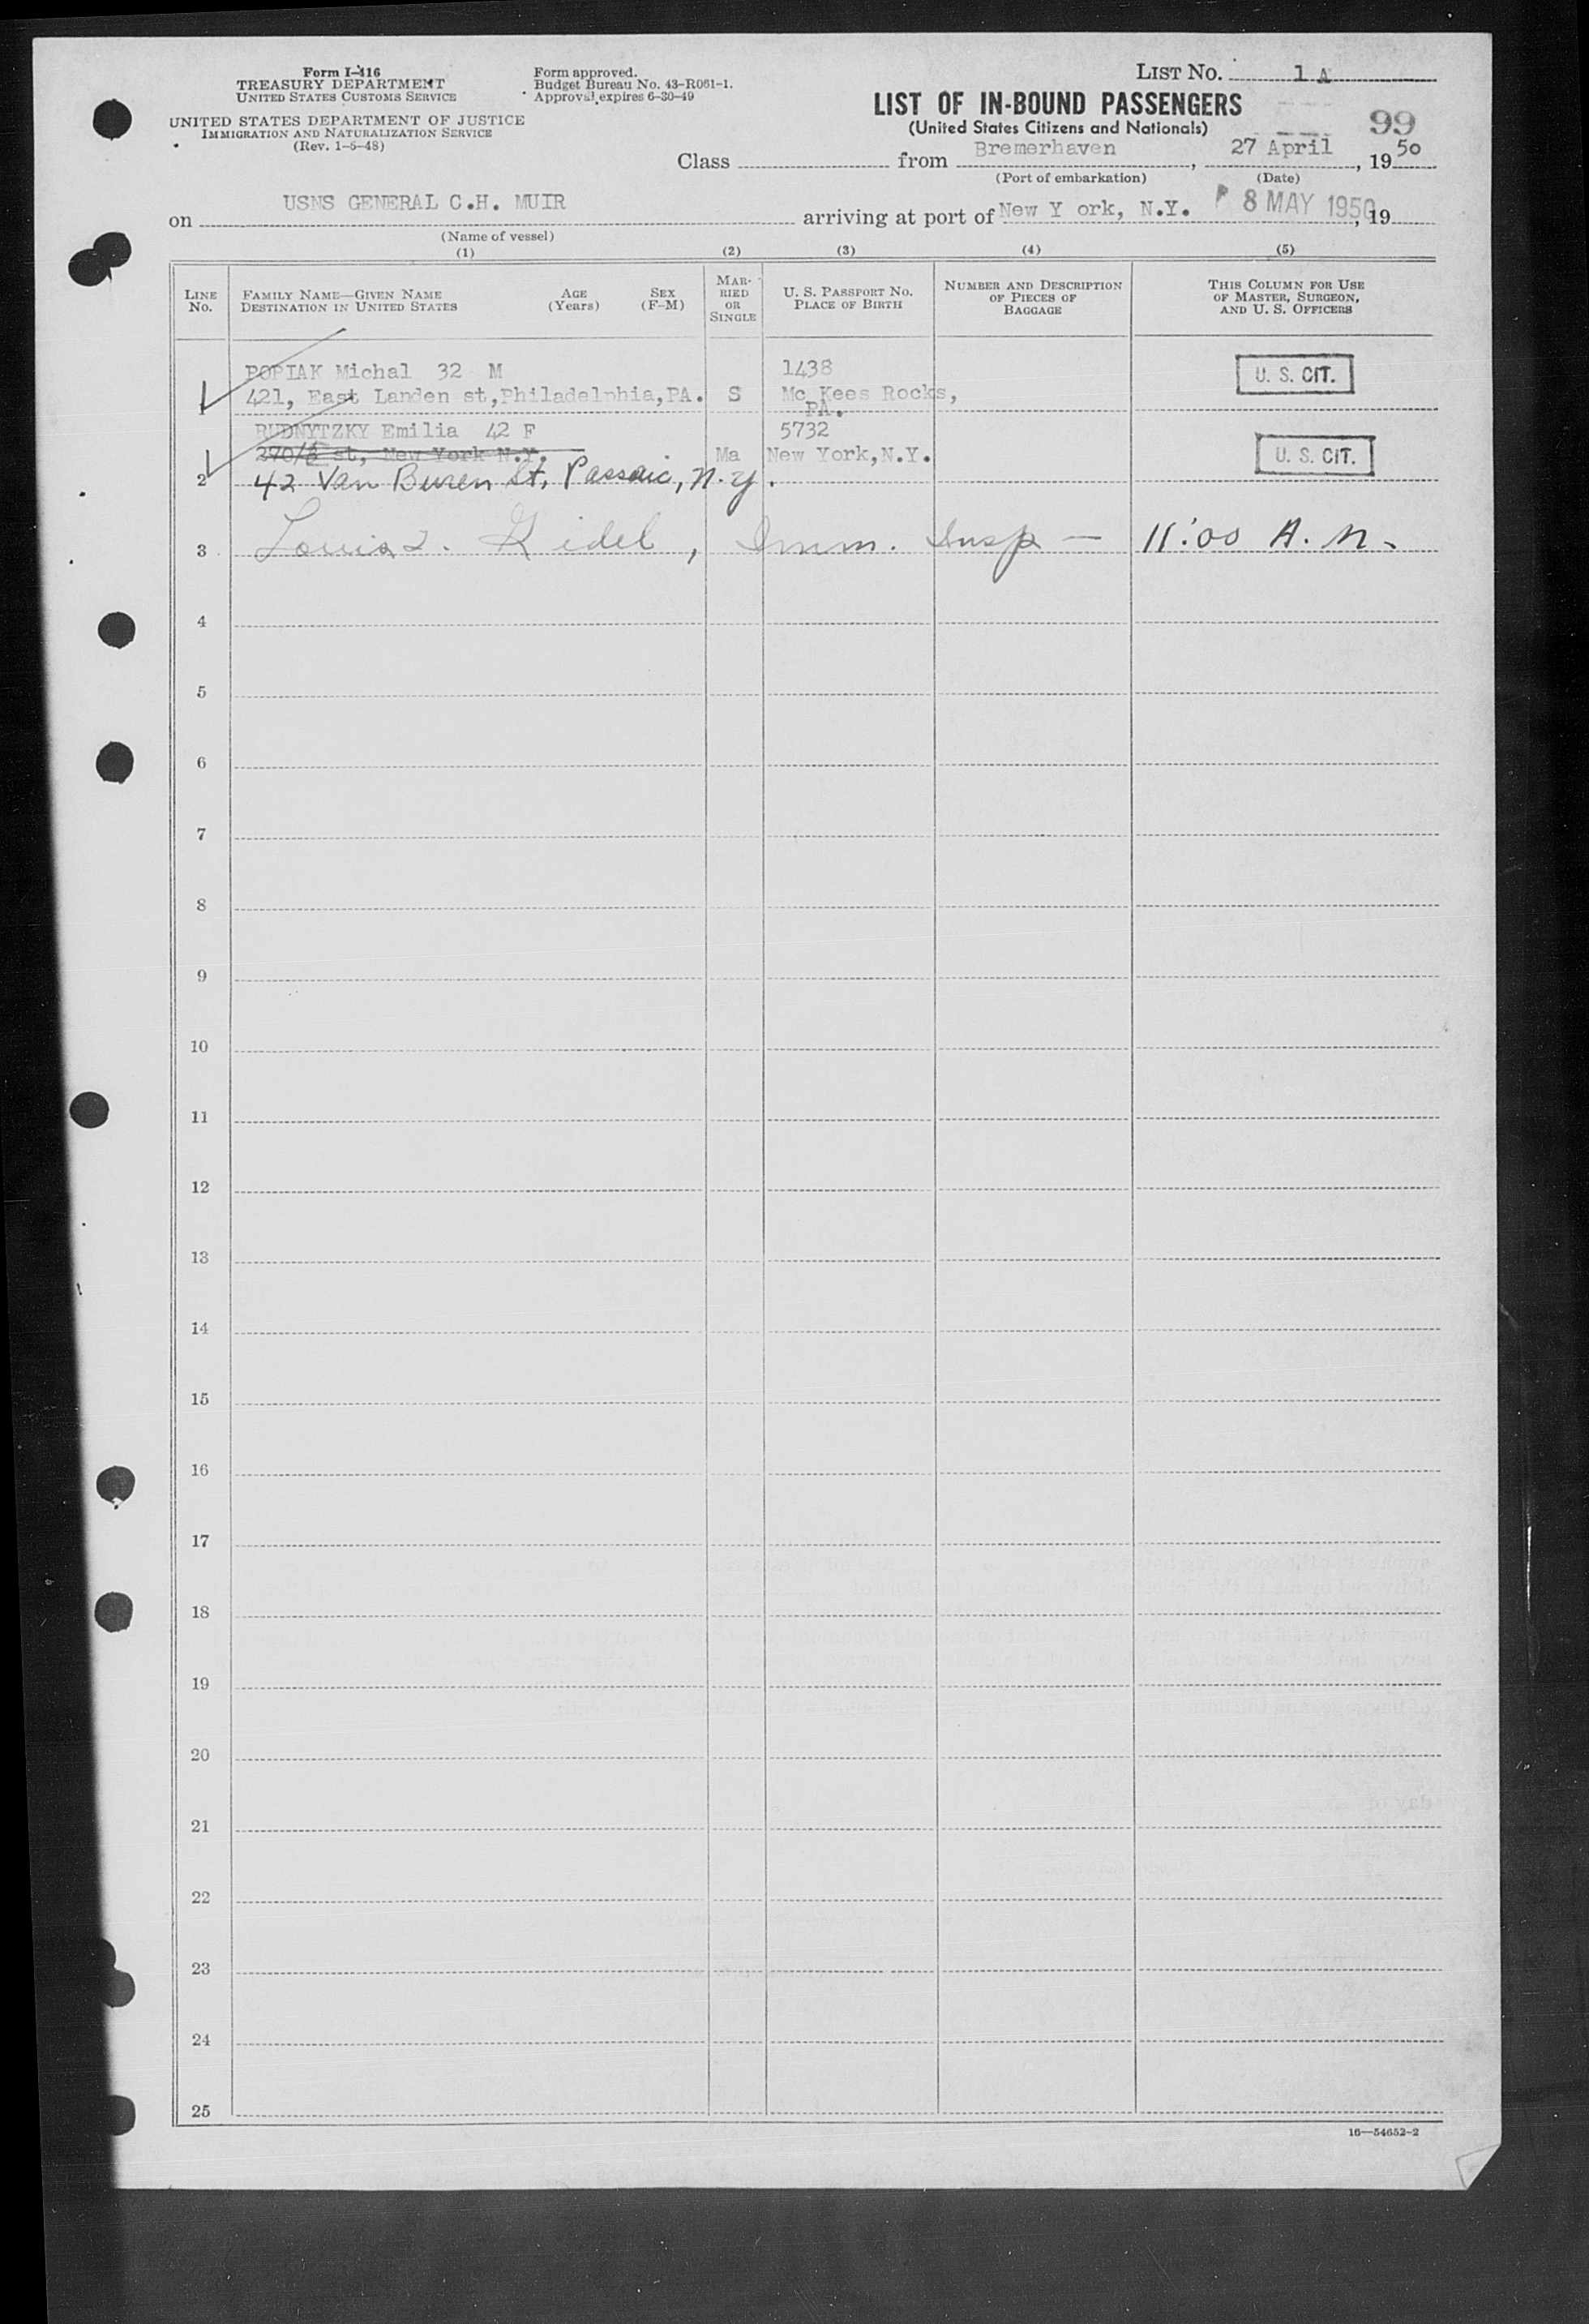 Form I-416
TREASURY DEPARTMENT
UNITED STATES CUSTOMS SERVICE
UNITED STATES DEPARTMENT OF JUSTICE
IMMIGRATION AND NATURALIZATION SERVICE
(Rev. 1-5-48)
Form approved.
Budget Bureau No. 43-R061-1.
Approval expires 6-30-49
LIST NO. 1 A
LIST OF IN-BOUND PASSENGERS
(United States Citizens and Nationals)
99
Class from Bremerhaven, 27 April, 1950
(Port of embarkation) (Date)
on USNS GENERAL C.H. MUIR arriving at port of New Y ork, N.Y. 8 MAY 1950, 19
(Name of vessel)
(1) (2) (3) (4) (5)
LINE NO.
FAMILY NAME—GIVEN NAME AGE SEX
DESTINATION IN UNITED STATES (Years) (F-M)
MARRIED OR SINGLE
U. S. PASSPORT NO.
PLACE OF BIRTH
NUMBER AND DESCRIPTION
OF PIECES OF
BAGGAGE
THIS COLUMN FOR USE
OF MASTER, SURGEON,
AND U. S. OFFICERS
POPIAK Michal 32 M 1438 U. S. CIT.
1 421, East Landen st,Philadelphia,PA. S Mc Kees Rocks,
PA.
RUDNYTZKY Emilia 42 F 5732
st, New York N.Y. Ma New York,N.Y. U. S. CIT.
2 42 Van Buren St, Passaic, N.Y.
3 Louis Imm. Insp — 11:00 A.M.
4
5
6
7
8
9
10
11
12
13
14
15
16
17
18
19
20
21
22
23
24
25
16—54652-2